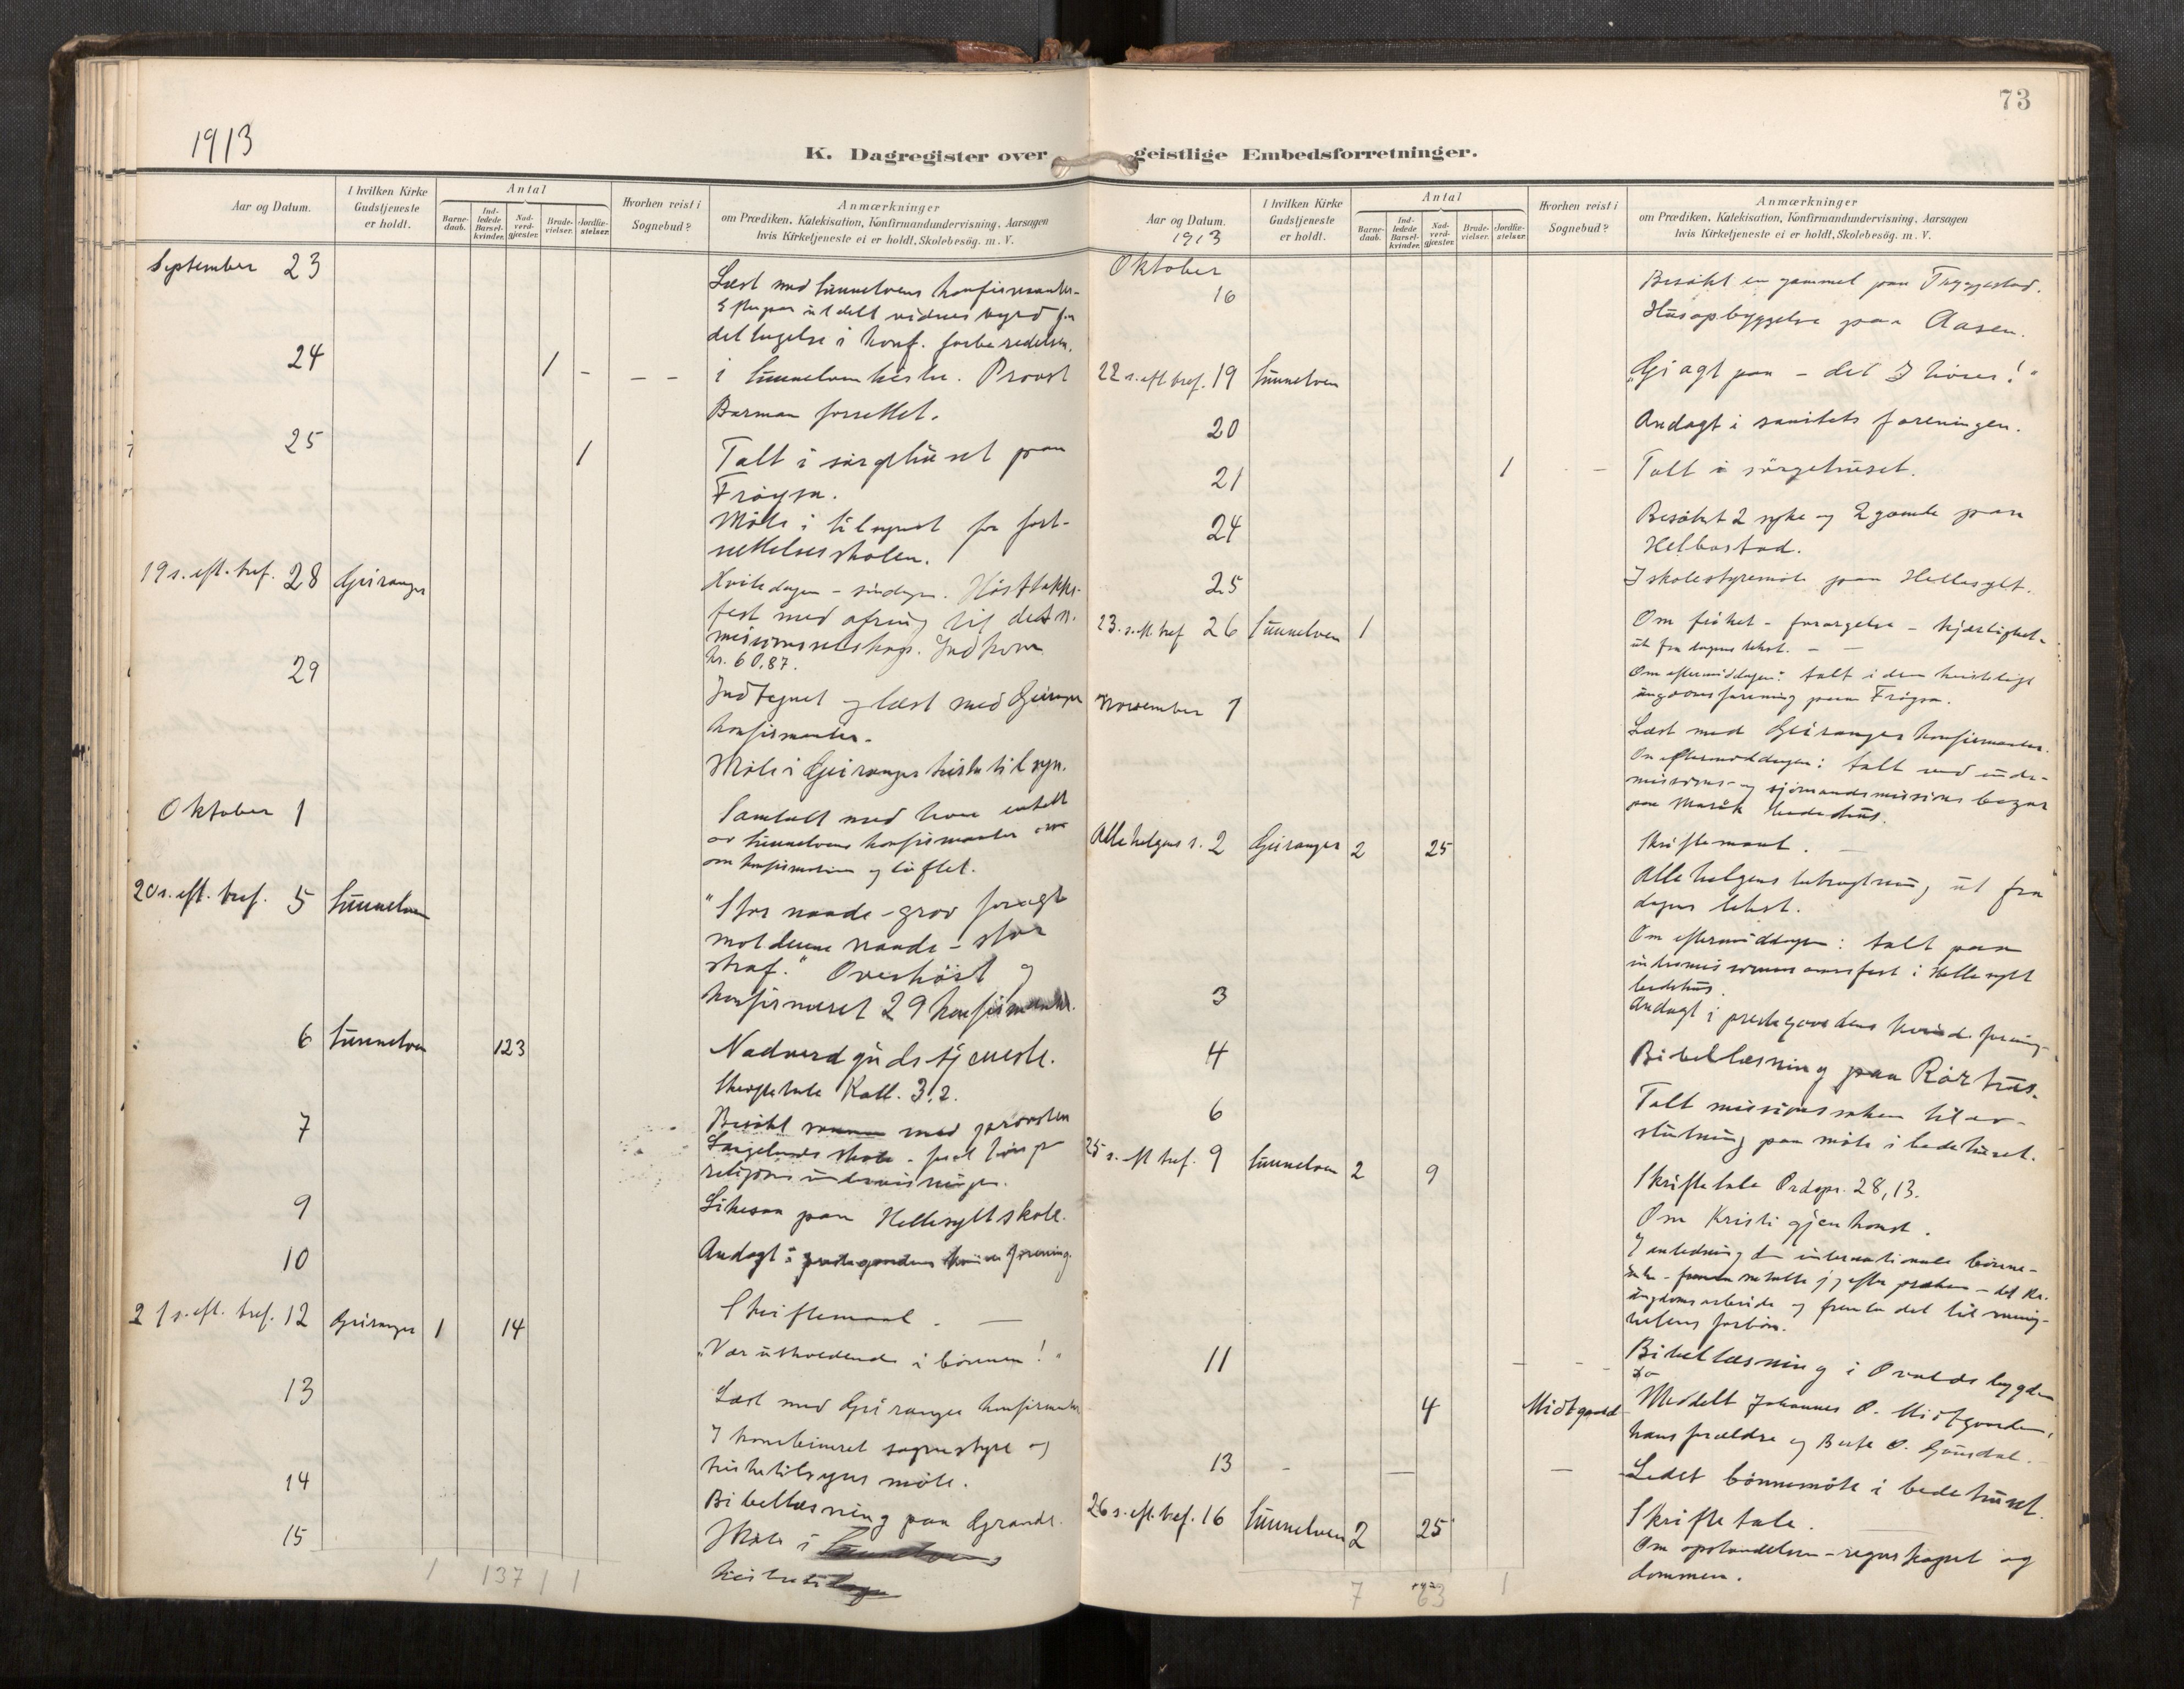 1913
K. Dagregister over
Aar og Datum.
I hvilken Kirke Gudstjeneste er holdt.
Antal
Barne-daab.
Ind-ledede Barsel-kvinder.
Nad-verd-gjester.
Brude-vielser.
Jordfæ-stelser.
Hvorhen reist i Sognebud?
Anmærkninger
om Prædiken, Katekisation, Konfirmandundervisning, Aarsagen
hvis Kirketjeneste ei er holdt, Skolebesög. m. V.
September 23
Læst med Sunnelvens konfirmanter.
utdelt vidnesbyrd for
deltagelse i konf. forberedelsen.
24 1 - - - -
i Sunnelven kirke. Provst
Barman forrettet.
25 1
Talt i sørgehuset paa
Frøysa.
Møte i tilsynet for fort-
settelsesskolen.
19 s. eft. tref. 28 Geiranger
Hviledagen - søndagen. Høsttakke-
fest med ofring til det n.
missionsselskap. Indkom
kr. 60.87.
29
Indtegnet og læst med Geiranger
konfirmanter.
Møte i Geiranger kirketilsyn.
Oktober 1
Samtalt med hver enkelt
av Sunnelvens konfirmanter
om konfirmation og løftet.
20 s. eft. tref. 5 Sunnelven
"Stor naade - grov foragt
mot denne naade - stor
straf." Overhørt og
konfirmeret 29 konfirmanter.
6 Sunnelven 123
Nadverdgudstjeneste.
Skriftetale Kall. 3.2.
7
Besøkt med provsten
Langelands skole -
religionsundervisningen.
9
Likesaa paa Hellesylt skole.
10
Andagt i prestegaardens kvindeforening.
21 s. eft. tref. 12 Geiranger 1 14
Skriftemaal. —
"Vær utholdende i bønnen!"
13
Læst med Geiranger konfirmanter
I kombineret sognestyre og
kirketilsyns møte.
14
Bibellæsning paa Grande.
15
Møte i
1 137 1 1
73
geistlige Embedsforretninger.
Aar og Datum.
1913
I hvilken Kirke Gudstjeneste er holdt.
Antal
Barne-daab.
Ind-ledede Barsel-kvinder.
Nad-verd-gjester.
Brude-vielser.
Jordfæ-stelser.
Hvorhen reist i Sognebud?
Anmærkninger
om Prædiken, Katekisation, Konfirmandundervisning, Aarsagen
hvis Kirketjeneste ei er holdt, Skolebesög. m. V.
Oktober
16
Besøkt en gammel paa Tryggestad.
Husopbyggelse paa Aasen.
22 s. eft tref. 19 Sunnelven
"Gi agt paa - det I hører!"
20
Andagt i sanitetsforeningen.
21 1 - -
Talt i sørgehuset.
24
Besøkt 2 syke og 2 gamle paa
Helbostad.
25
I skolestyremøte paa Hellesylt.
23. s. eft tref 26 Sunnelven 1
Om frihet - forargelse - kjærlighet -
ut fra dagens tekst. - —
Om eftermiddagen: talt i den kristelige
ungdomsforening paa Frøysa.
November 1
Læst med Geiranger konfirmanter.
Om eftermiddagen: talt ved indre-
missions- og sjømandsmissions bazar
paa Maråk bedehus.
Allehelgens s. 2 Geiranger 2 25
Skriftemaal. —
Allehelgens betragtning ut fra
dagens tekst.
Om eftermiddagen: talt paa
indremissionens aarsfest i Hellesylt
bedehus.
3
Andagt i prestegaardens kvindeforening
4
Bibellæsning paa Rørhus.
6
Talt missionssaken til av-
slutning paa møte i bedehuset.
25 s. eft tref. 9 Sunnelven 2 9
Skriftetale Ordspr. 28,13.
Om Kristi gjenkomst.
I anledning den internationale bønne-
uke - jeg efter præken - det kr.
ungdomsarbeide og det til menig-
hetens forbøn.
11 - - -
Bibellæsning i Ovaldsbygden
4 Midtgaard
Meddelt Johannes O. Midtgaarden,
hans forældre og Berte O. Ljøsdal.
13 - — —
Ledet bønnemøte i bedehuset.
26 s. eft. tref. 16 Sunnelven 2 25
Skriftetale.
Om opstandelsen - regnskapet og
dommen.
7 63 1